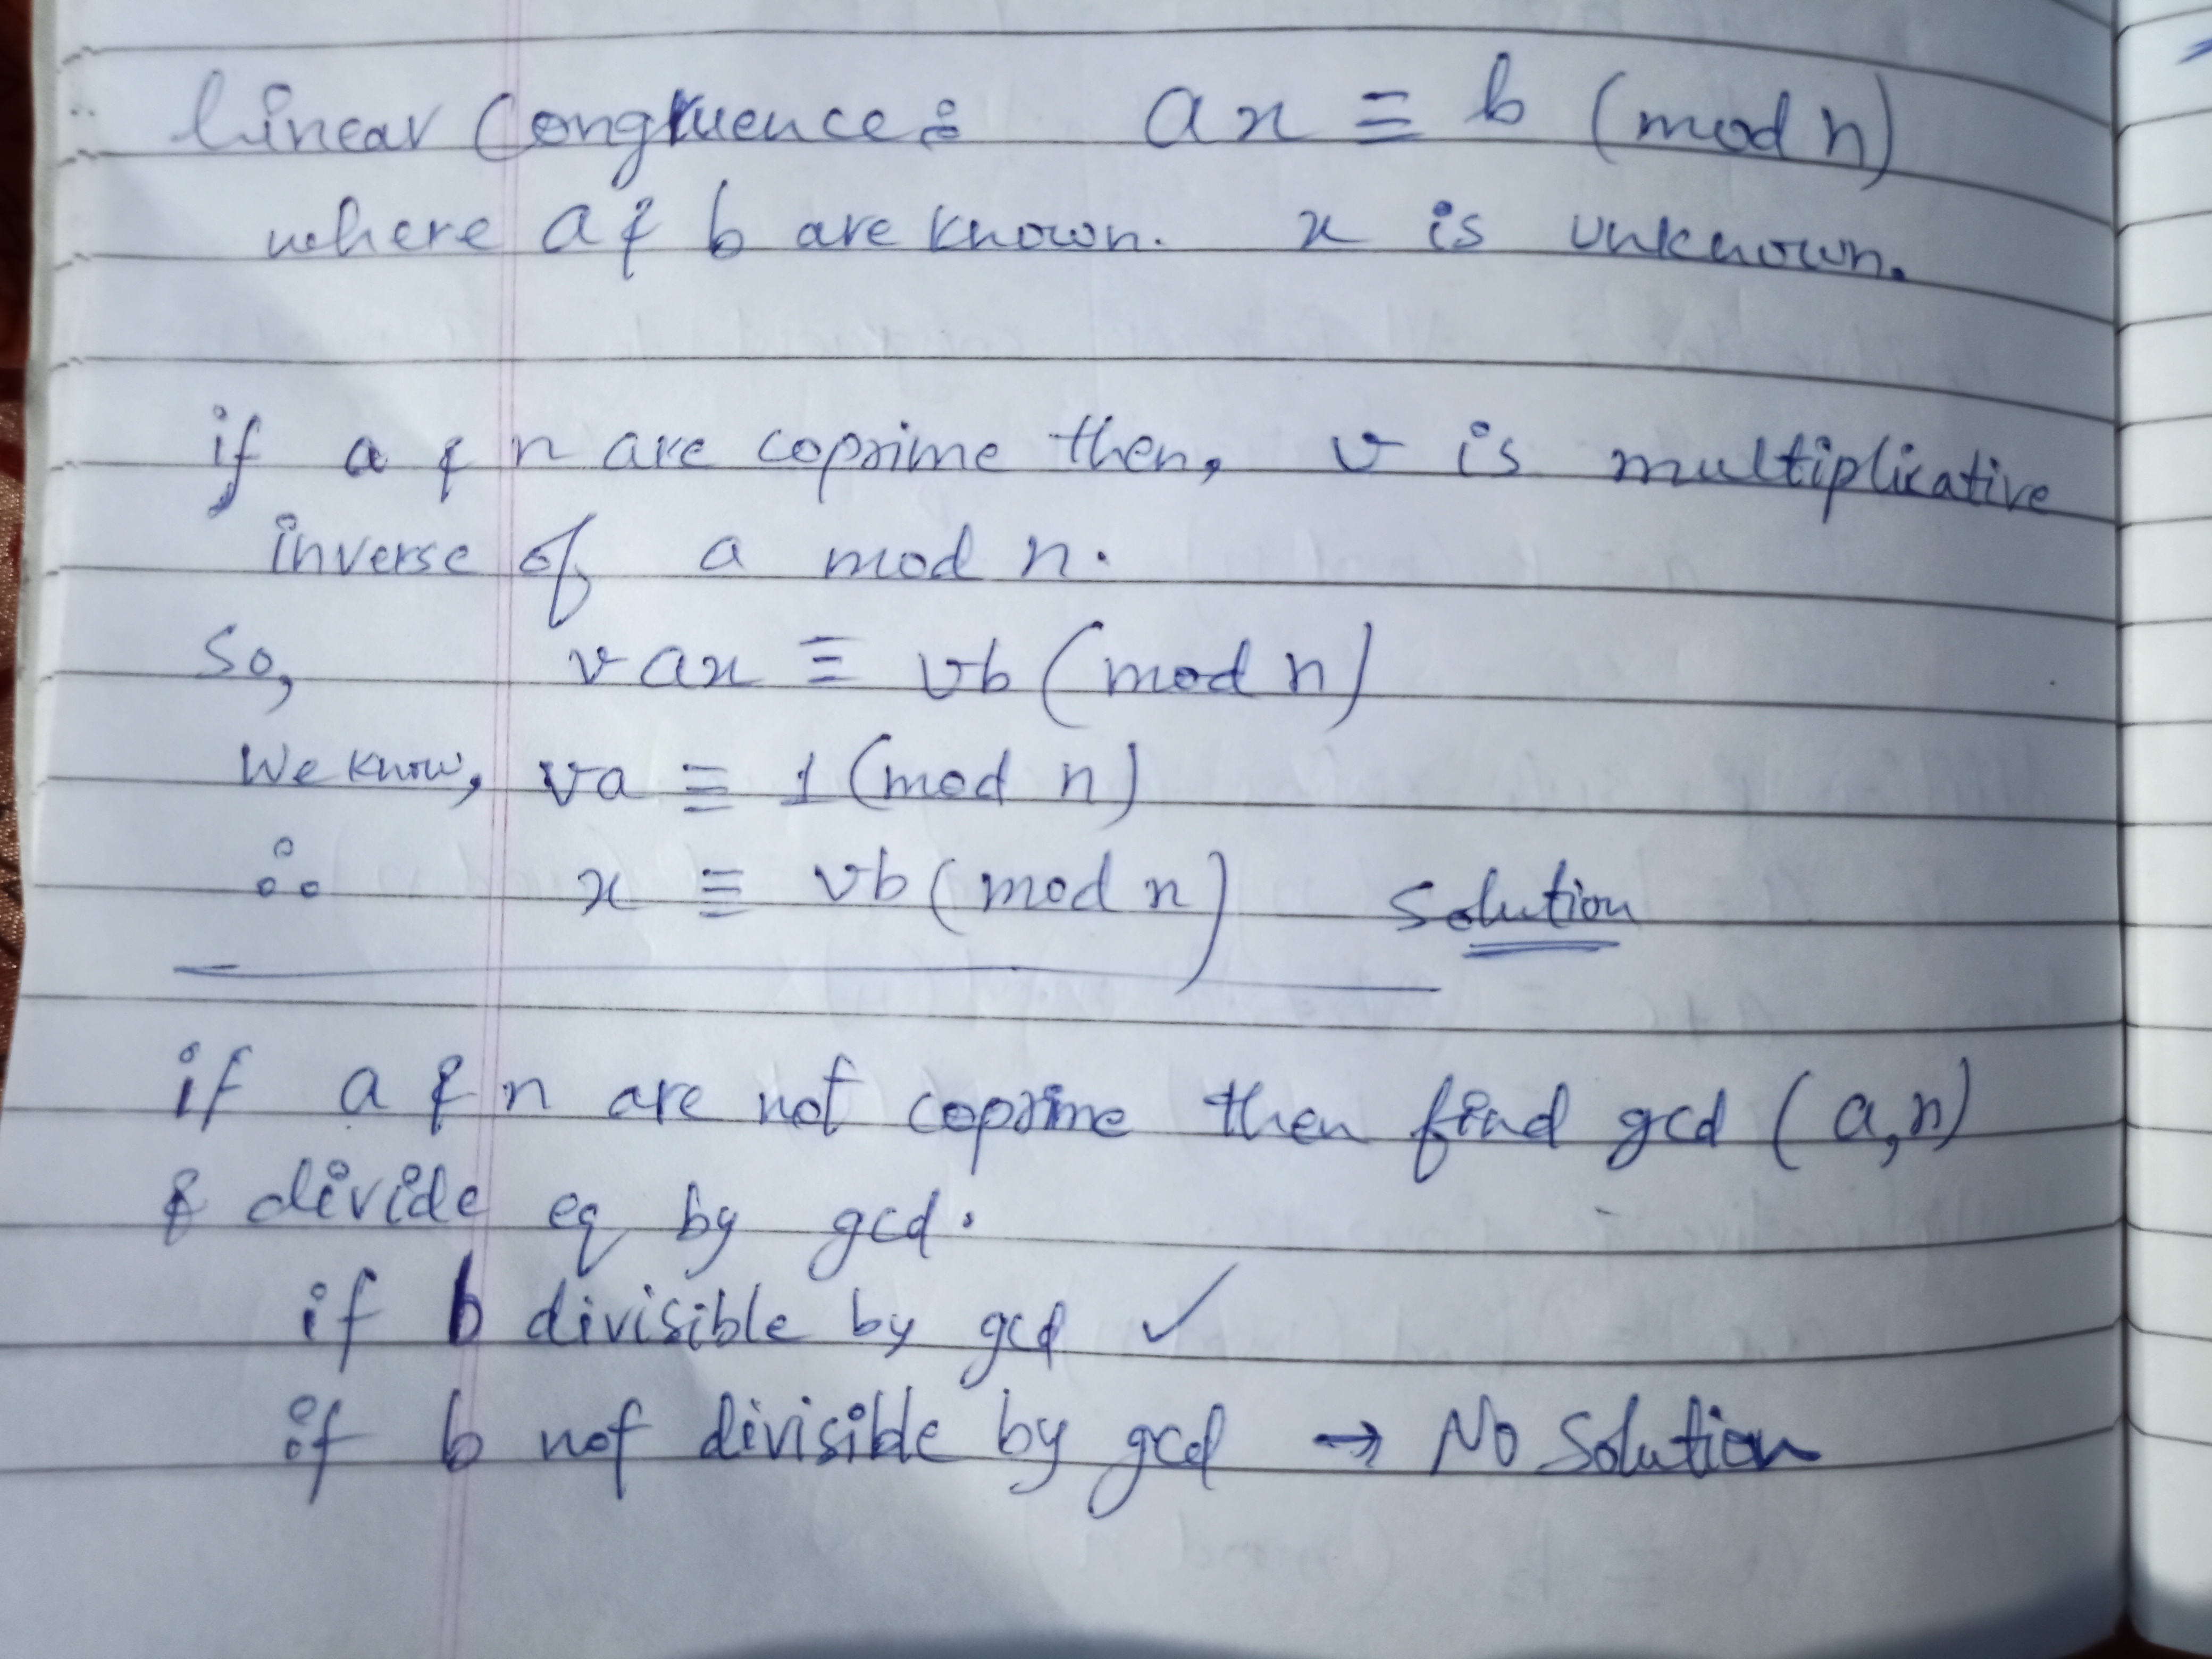 Linear Congruence: ax ≡ b (mod n)
where a & b are known. x is unknown.
if a & n are coprime then, v is multiplicative
inverse of a mod n.
So, vax ≡ vb (mod n)
We know, va ≡ 1 (mod n)
∴ x ≡ vb (mod n) Solution
if a & n are not coprime then find gcd (a,n)
& divide eq by gcd.
if b divisible by gcd ✓
if b not divisible by gcd → No Solution